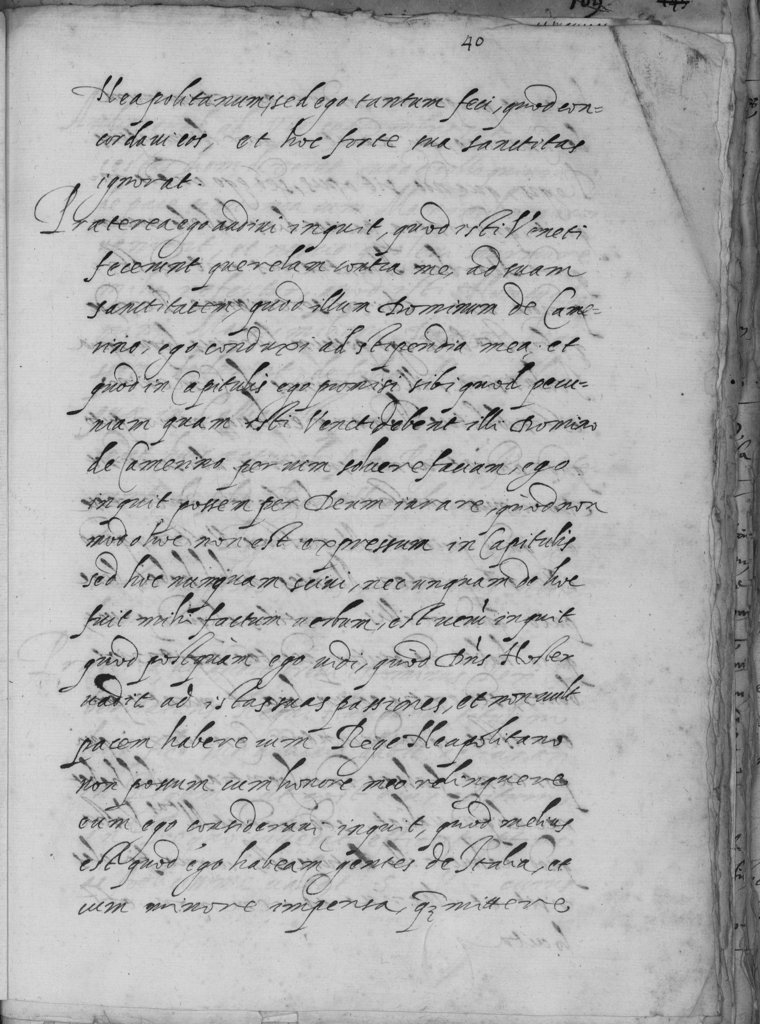 40
Neapolitanum, sed ego tantum feci, quod con=
cordavi eos, et hoc forte sua sanctitas
ignorat
Praeterea ego audivi inquit, quod isti Veneti
fecerunt querelam contra me ad suam
sanctitatem, quod illum Dominum de Came=
rino, ego conduxi ad stipendia mea, et
quod in Capitulis ego promisi sibi quod pecu=
niam quam isti Veneti debent illi Domino
de Camerino per vim solvere faciam, ego
inquit possem per Deum iurare, quod non
modo hoc non est expressum in Capitulis
sed hoc nunquam scivi, nec unquam de hoc
fuit mihi factum verbum, est verũ inquit
quod postquam ego vidi, quod Dñs Noster
vadit ad istas suas passiones, et non vult
pacem habere cum Rege Neapolitano
non possum cum honore meo relinquere
eum ego consideravi inquit, quod melius
est quod ego habeam gentes de Italia, et
cum minore impensa, q̃ mittere